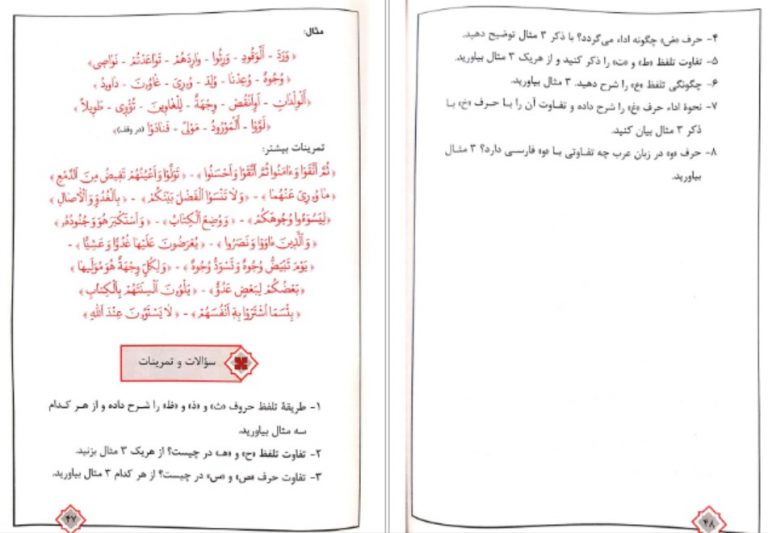 مثال:
﴿ وَرَدَ - اَلْوَقُودِ - وَرِثُوا - وارِدَهُمْ - تَواعَدْتُمْ - نَواصِی ﴾
﴿ وُجُوهٌ - وُعِدْنا - وُلِدَ - وُرِیَ - غاوُونَ - داوُدَ ﴾
﴿ اَلْوِلْدانِ - اَوِانْقُصْ - وِجْهَةٌ - لِلْغاوِینَ - تُؤْوِی - طَوِیلاً ﴾
﴿ لَوَّوْا - اَلْمَوْرُودُ - مَوْلیً - فَنادَوْا (در وقف) ﴾
تمرینات بیشتر:
﴿ ثُمَّ اتَّقَوْا وَءَامَنُوا ثُمَّ اتَّقَوْا وَاَحْسَنُوا ﴾ - ﴿ تَوَلَّوْا وَاَعْیُنُهُمْ تَفِیضُ مِنَ الدَّمْعِ ﴾
﴿ ما وُرِیَ عَنْهُما ﴾ - ﴿ وَلا تَنْسَوُا الْفَضْلَ بَیْنَکُمْ ﴾ - ﴿ بِالْغُدُوِّ وَالْآصالِ ﴾
﴿ لِیَسُوءُوا وُجُوهَکُمْ ﴾ - ﴿ وَوُضِعَ الْکِتابُ ﴾ - ﴿ وَاسْتَکْبَرَ هُوَ وَجُنُودُهُ ﴾
﴿ وَالَّذِینَ ءاوَوْا وَنَصَرُوا ﴾ - ﴿ یُعْرَضُونَ عَلَیْها غُدُوًّا وَعَشِیًّا ﴾
﴿ یَوْمَ تَبْیَضُّ وُجُوهٌ وَتَسْوَدُّ وُجُوهٌ ﴾ - ﴿ وَلِکُلٍّ وِجْهَةٌ هُوَ مُوَلِّیها ﴾
﴿ بَعْضُکُمْ لِبَعْضٍ عَدُوٌّ ﴾ - ﴿ یَلْوُونَ اَلْسِنَتَهُمْ بِالْکِتابِ ﴾
﴿ بِئْسَمَا اشْتَرَوْا بِهِ اَنْفُسَهُمْ ﴾ - ﴿ لا یَسْتَوُونَ عِنْدَ اللهِ ﴾
سؤالات و تمرینات
۱- طریقهٔ تلفظ حروف «ث» و «ذ» و «ظ» را شرح داده و از هر کدام
سه مثال بیاورید.
۲- تفاوت تلفظ «ح» و «هـ» در چیست؟ از هریک ۳ مثال بزنید.
۳- تفاوت حرف «ص» و «س» در چیست؟ از هر کدام ۳ مثال بیاورید.
۴۷
۴- حرف «ض» چگونه اداء می‌گردد؟ با ذکر ۳ مثال توضیح دهید.
۵- تفاوت تلفظ «ط» و «ت» را ذکر کنید و از هریک ۳ مثال بیاورید.
۶- چگونگی تلفظ «ع» را شرح دهید. ۳ مثال بیاورید.
۷- نحوهٔ اداء حرف «غ» را شرح داده و تفاوت آن را با حرف «خ» با
ذکر ۳ مثال بیان کنید.
۸- حرف «و» در زبان عرب چه تفاوتی با «و» فارسی دارد؟ ۳ مثال
بیاورید.
۴۸